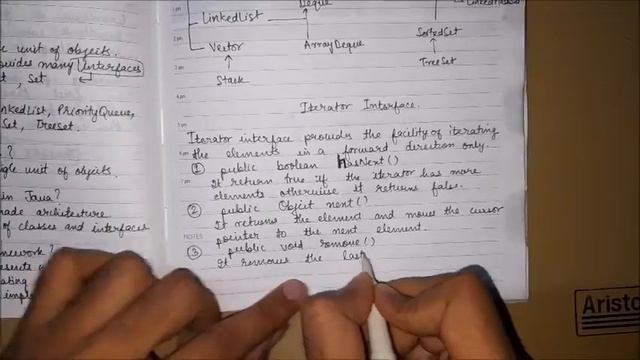 e unit of objects.
vides many interfaces
t, Set
nkedList, PriorityQueue,
Set, TreeSet.
?
ngle unit of objects.
in Java?
made architecture
of classes and interfaces
mework?
1 pm
2 pm
3 pm
4 pm
5 pm
NOTES
Deque
LinkedList
Vector
ArrayDeque
SortedSet
Stack
TreeSet
Iterator Interface.
Iterator interface provides the facility of iterating
the elements in a forward direction only.
① public boolean hasNext()
It return true if the iterator has more
elements otherwise it returns false.
② public Object next()
It returns the element and moves the cursor
pointer to the next element.
③ public void remove()
It removes the last
Aristo